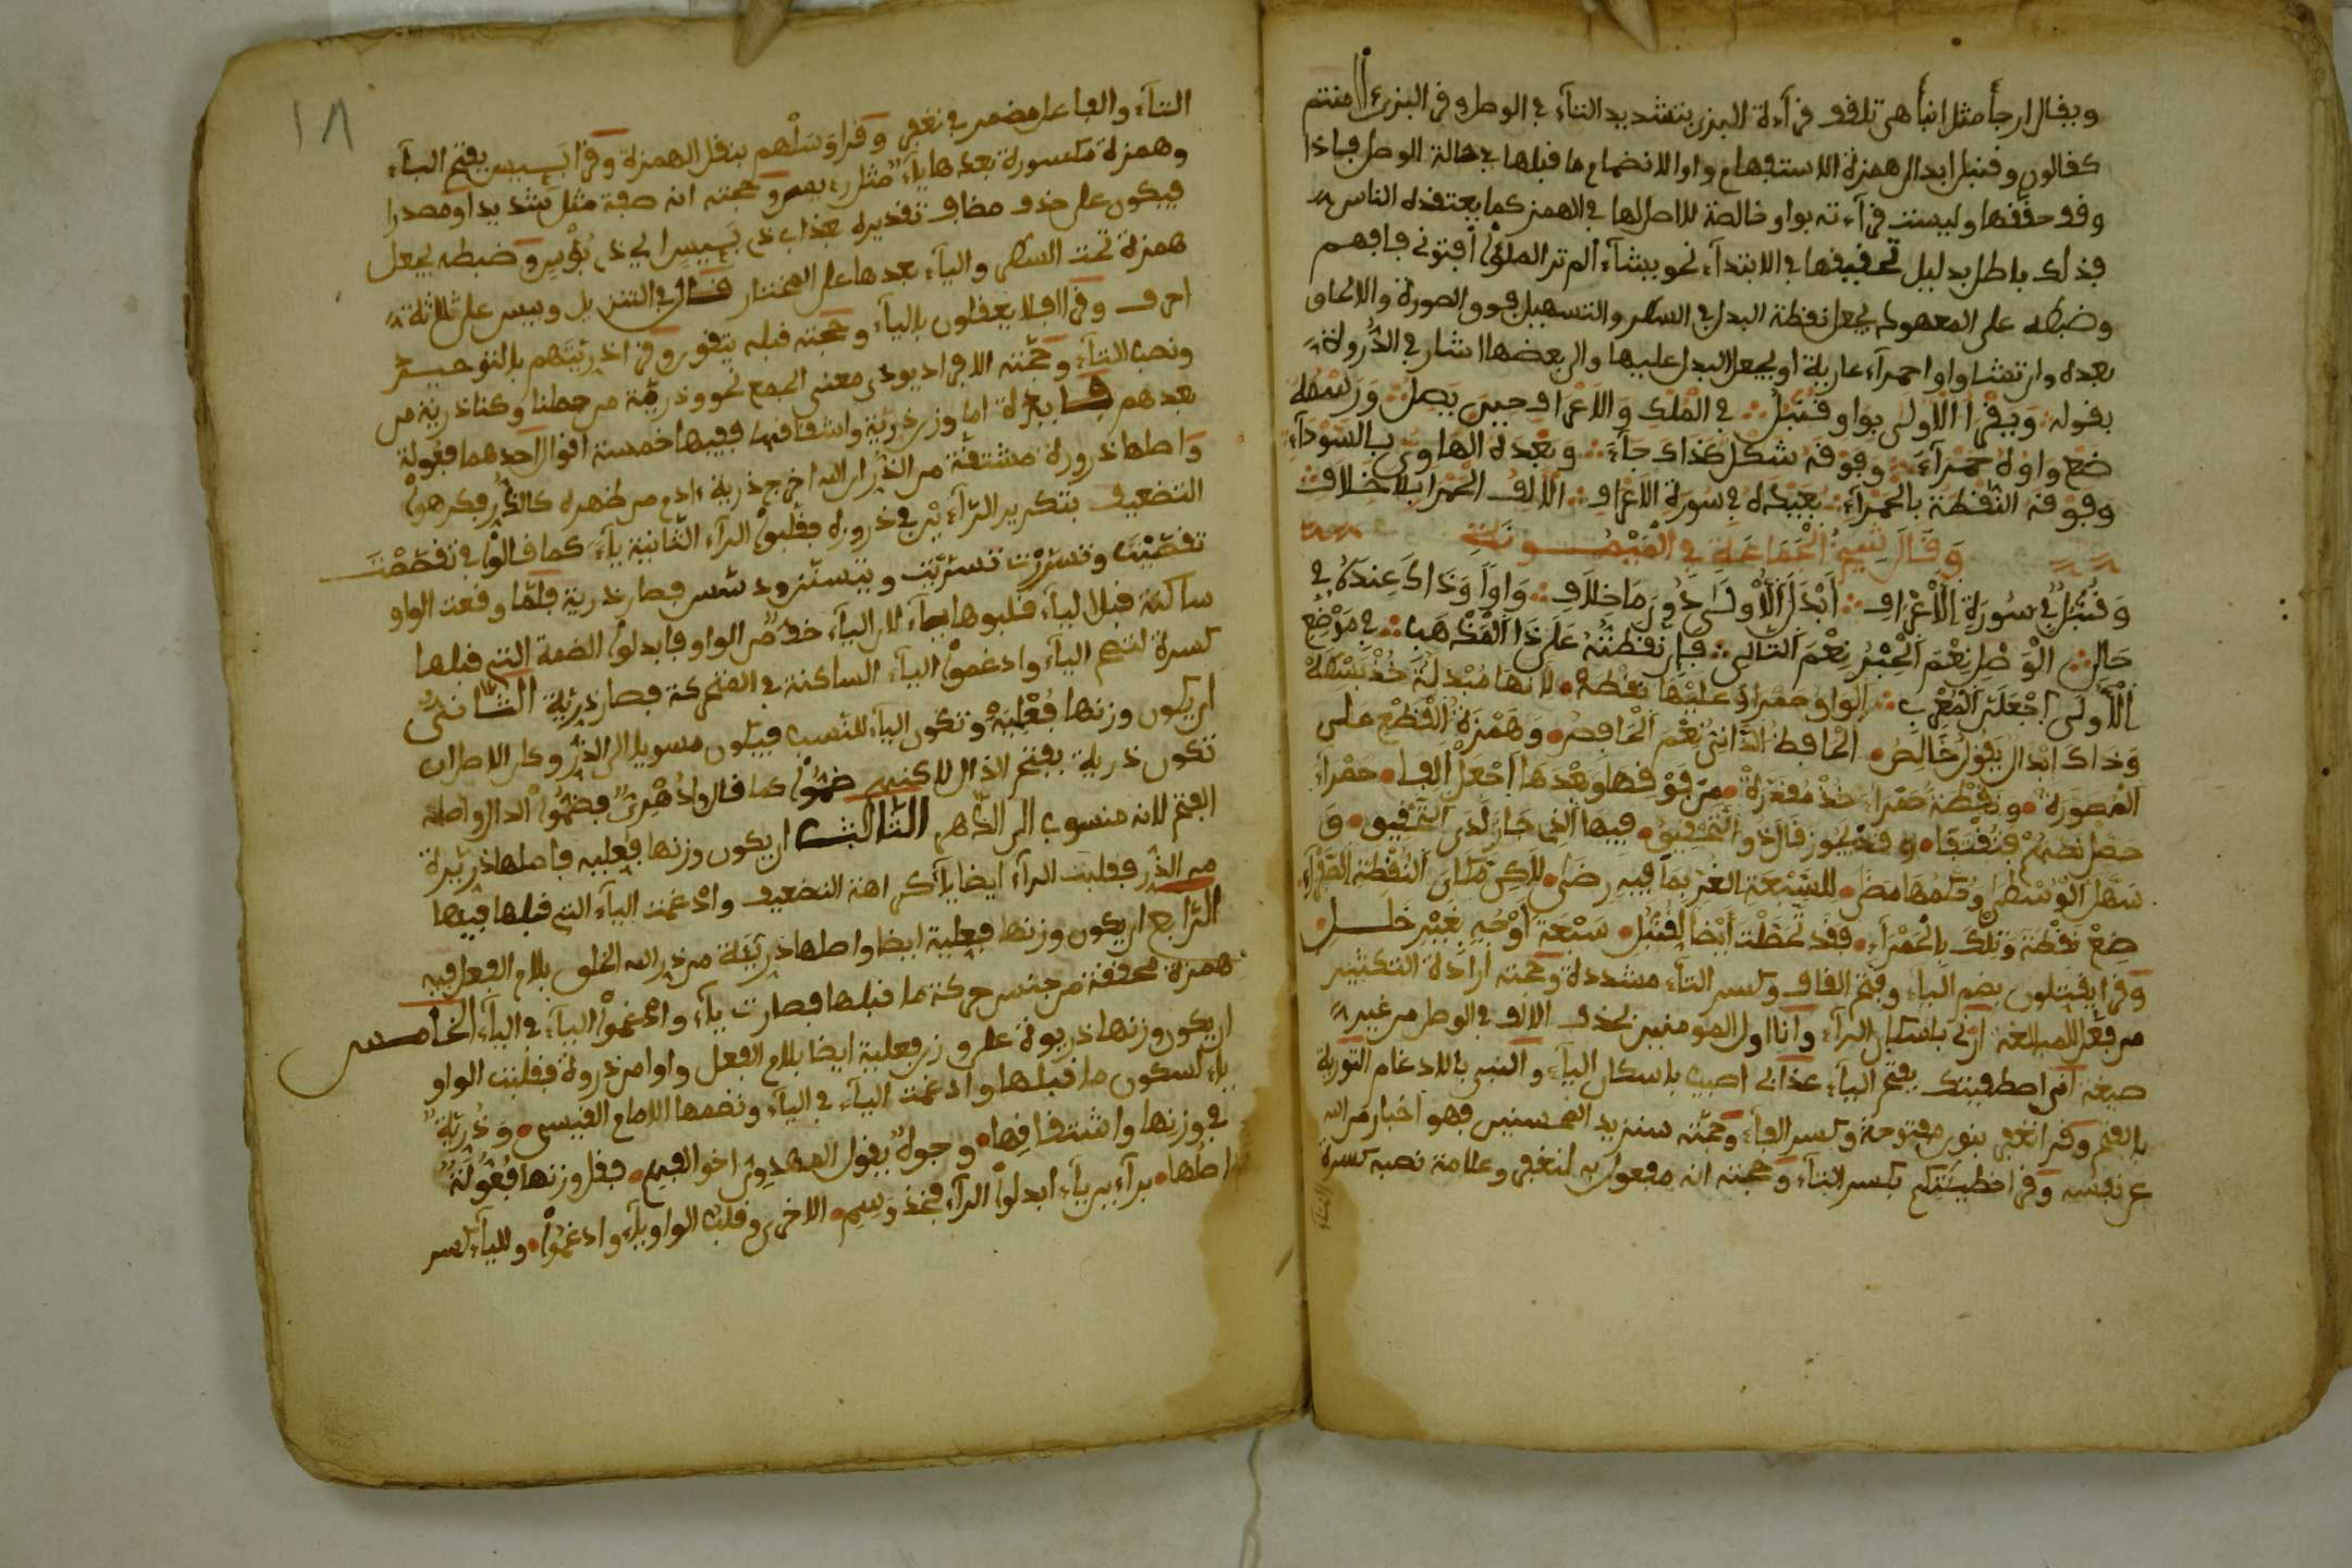 ويقال ارجأ مثل انبأ هي تلقف قرأءة البزي بتشديد التاء في الوصل وقرا البزي ءا۬منتم
كقالون وقنبل ابدال همزة الاستفهام واوا لانضمام ما قبلها في حالة الوصل فاذا
وقف حققها وليست قرآءته بواو خالصة لا اصل لها في الهمز كما يعتقده الناس
فذلك باطل بدليل تحقيقها في الابتدآء نحو يشآء الم تر الملؤا افتوني فافهم
وضبطه على المعهود يجعل نقطة البدل في السطر والتسهيل فوق الصورة والالحاق
بعده وان تشا واوا حمرآء عارية او يجعل البدل عليها والى بعضها اشار في الدرة
بقوله ويقرا الاولى بواو قنبل في الملك والاعراف حين يصل ورسمه
ضع واوه حمرآء وفوقه شكل كذاك جاء وبعده الهاوي بالسودآء
وفوقه النقطة بالحمرآء بعيده في سورة الاعراف الالف الحمرا بلا خلاف
وقال شيخ الجماعة في الميمونة
وقنبل في سورة الاعراف ابدل الاولى دون ما خلاف واوا وذاك عنده في
حال الوصل نعم الحبر نعم التالي فان نقطته على ذا المذهب في موضع
الاولى اجعلن المغرب الواو حمرا وعليها نقطة لانها مبدلة خذ بسطه
وذاك ابدال يقول خالص الحافظ الداني نعم الفاحص وهمزة القطع على
الصورة ونقطة حمراء خذ مقررة من فوقها وبعدها اجعل الفا حمراء
سهل الوسطى وحكمها مضى للسبعة الغر بما فيه رضى لاكن مكان النقطة الصفرآء
ضع نقطة وتلك بالحمرآء فقد تحصلت ايضا لقنبل سبعة اوجه بغير خلل
وقرا يقتلون بضم الياء وفتح القاف وكسر التاء مشددة وحجته ارادة التكثير
من فعل للمبالغة ارني باسكان الرآء وانا اول المومنين بحذف الالف في الوصل من غير
صيغة اني اصطفيتك بفتح الياء عذابي اصيب باسكان الياء والنبي بالادغام التورية
بالفتح وقرا نغفر بنون مفتوحة وكسر الفاء وحجته سنزيد المحسنين فهو اخبار من الله
عن نفسه وقرا خطيئتكم بكسر التاء وحجته انه مفعول به لنغفر وعلامة نصبه كسرة
١٨
التآء والفاعل مضمر في نغفر وقرا وسلهم بنقل الهمزة وقرا بئيس بفتح البآء
وهمزة مكسورة بعدها يآء مثل رءيس وحجته انه صفة مثل شديد او مصدرا
فيكون على حذف مضاف تقديره بعذاب ذي بئيس اي ذي بؤس وضبطه يجعل
همزة تحت السطر والياء بعدها على المختار قال في التنزيل وبيس على ثلاثة
احرف وقرا افلا يعقلون بالياء وحجته قبله يتقون وقرا ذريتهم بالتوحيد
ونصب التآء وحجته الافراد يودي معنى الجمع نحو وذرية من حملنا وكنا ذرية من
بعدهم فايدة اما وزن ذرية واشتقاقها ففيها خمسة اقوال احدهما فعولة
واصلها ذرورة مشتقة من الذر ان الله اخرج ذرية ءادم من ظهره كالذر فكرهوا
التضعيف بتكرير الرآء ين في ذرورة فقلبوا الرآء الثانية يآء كما قالوا في تقصصت
تقصيت وتسررت تسريت فصار ذرية فلما وقعت الواو
ساكنة قبل الياء قلبوها يآء لان اليآء اخف من الواو فابدلوا الضمة التي قبلها
كسرة لتصح اليآء وادغموا اليآء الساكنة في المتحركة فصار ذرية الثاني
ان يكون وزنها فعلية وتكون اليآء للنسب فيكون منسوبا الى الذر وكان الاصل ان
تكون ذرية بفتح الذال لاكنهم ضموا كما قالوا دهري فضموا الدال واصله
الفتح لانه منسوب الى الدهر الثالث ان يكون وزنها فعيلة فاصلها ذريرة
من الذر فقلبت الرآء ايضا يآء كراهة التضعيف وادغمت اليآء التي قبلها فيها
الرابع ان يكون وزنها فعيلة ايضا واصلها ذريئة من ذرا الله الخلق بلام الفعل فيه
همزة مخففة من جنس حركة ما قبلها فصارت يآء وادغموا اليآء في اليآء الخامس
ان يكون وزنها ذريوة على وزن فعيلة ايضا بلام الفعل واوا من ذروة فقلبت الواو
ياء لسكون ما قبلها وادغمت اليآء في اليآء ونضمها الامام القيسي وذرية
في وزنها واشتقاقها وجوه يقول المهدوي اخو الفهم فقل وزنها فعولة
اصلها برآءين يآء ابدلوا الرآء فخذ وسم الاخرى وقلب الواو يآء وادغموا ولليآء كسر